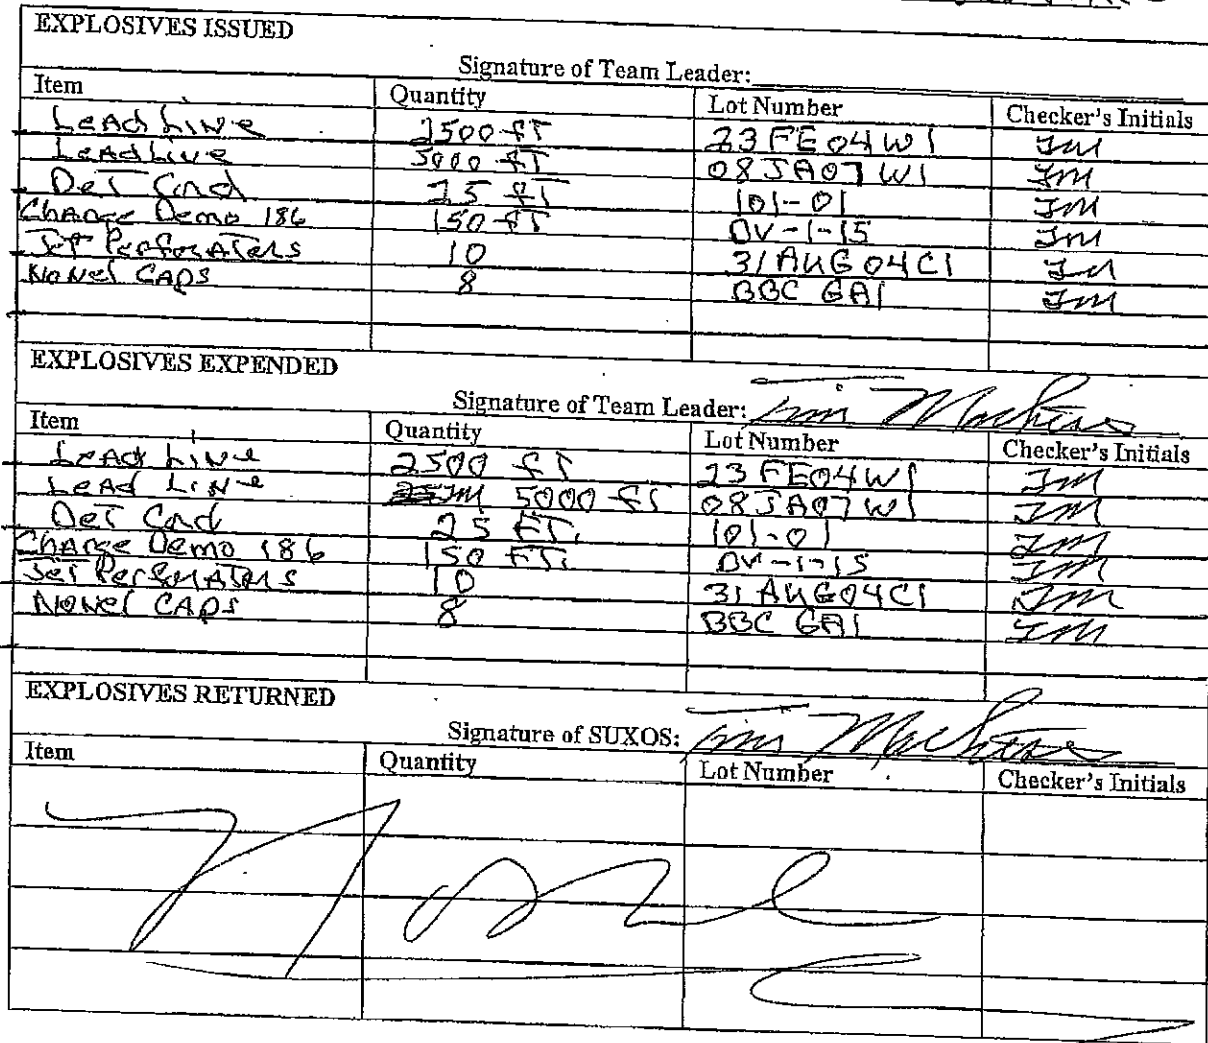 EXPLOSIVES ISSUED
Signature of Team Leader:
Item Quantity Lot Number Checker's Initials
Lead Line 2500 FT 23FE04W1 JM
Lead Line 5000 FT 08JA07W1 JM
Det Cord 25 FT 101-01 JM
Charge Demo 186 150 FT DV-1-15 JM
Jet Perforators 10 31AUG04C1 JM
Nonel CAPS 8 BBC GA1 JM
EXPLOSIVES EXPENDED
Signature of Team Leader: Tim
Item Quantity Lot Number Checker's Initials
Lead Line 2500 FT 23FE04W1 JM
Lead Line 5000 FT 08JA07W1 JM
Det Cord 25 FT. 101-01 JM
Charge Demo 186 150 FT. DV-1-15 JM
Jet Perforators 10 31AUG04C1 JM
Nonel CAPS 8 BBC GA1 JM
EXPLOSIVES RETURNED
Signature of SUXOS: Tim
Item Quantity Lot Number Checker's Initials
None